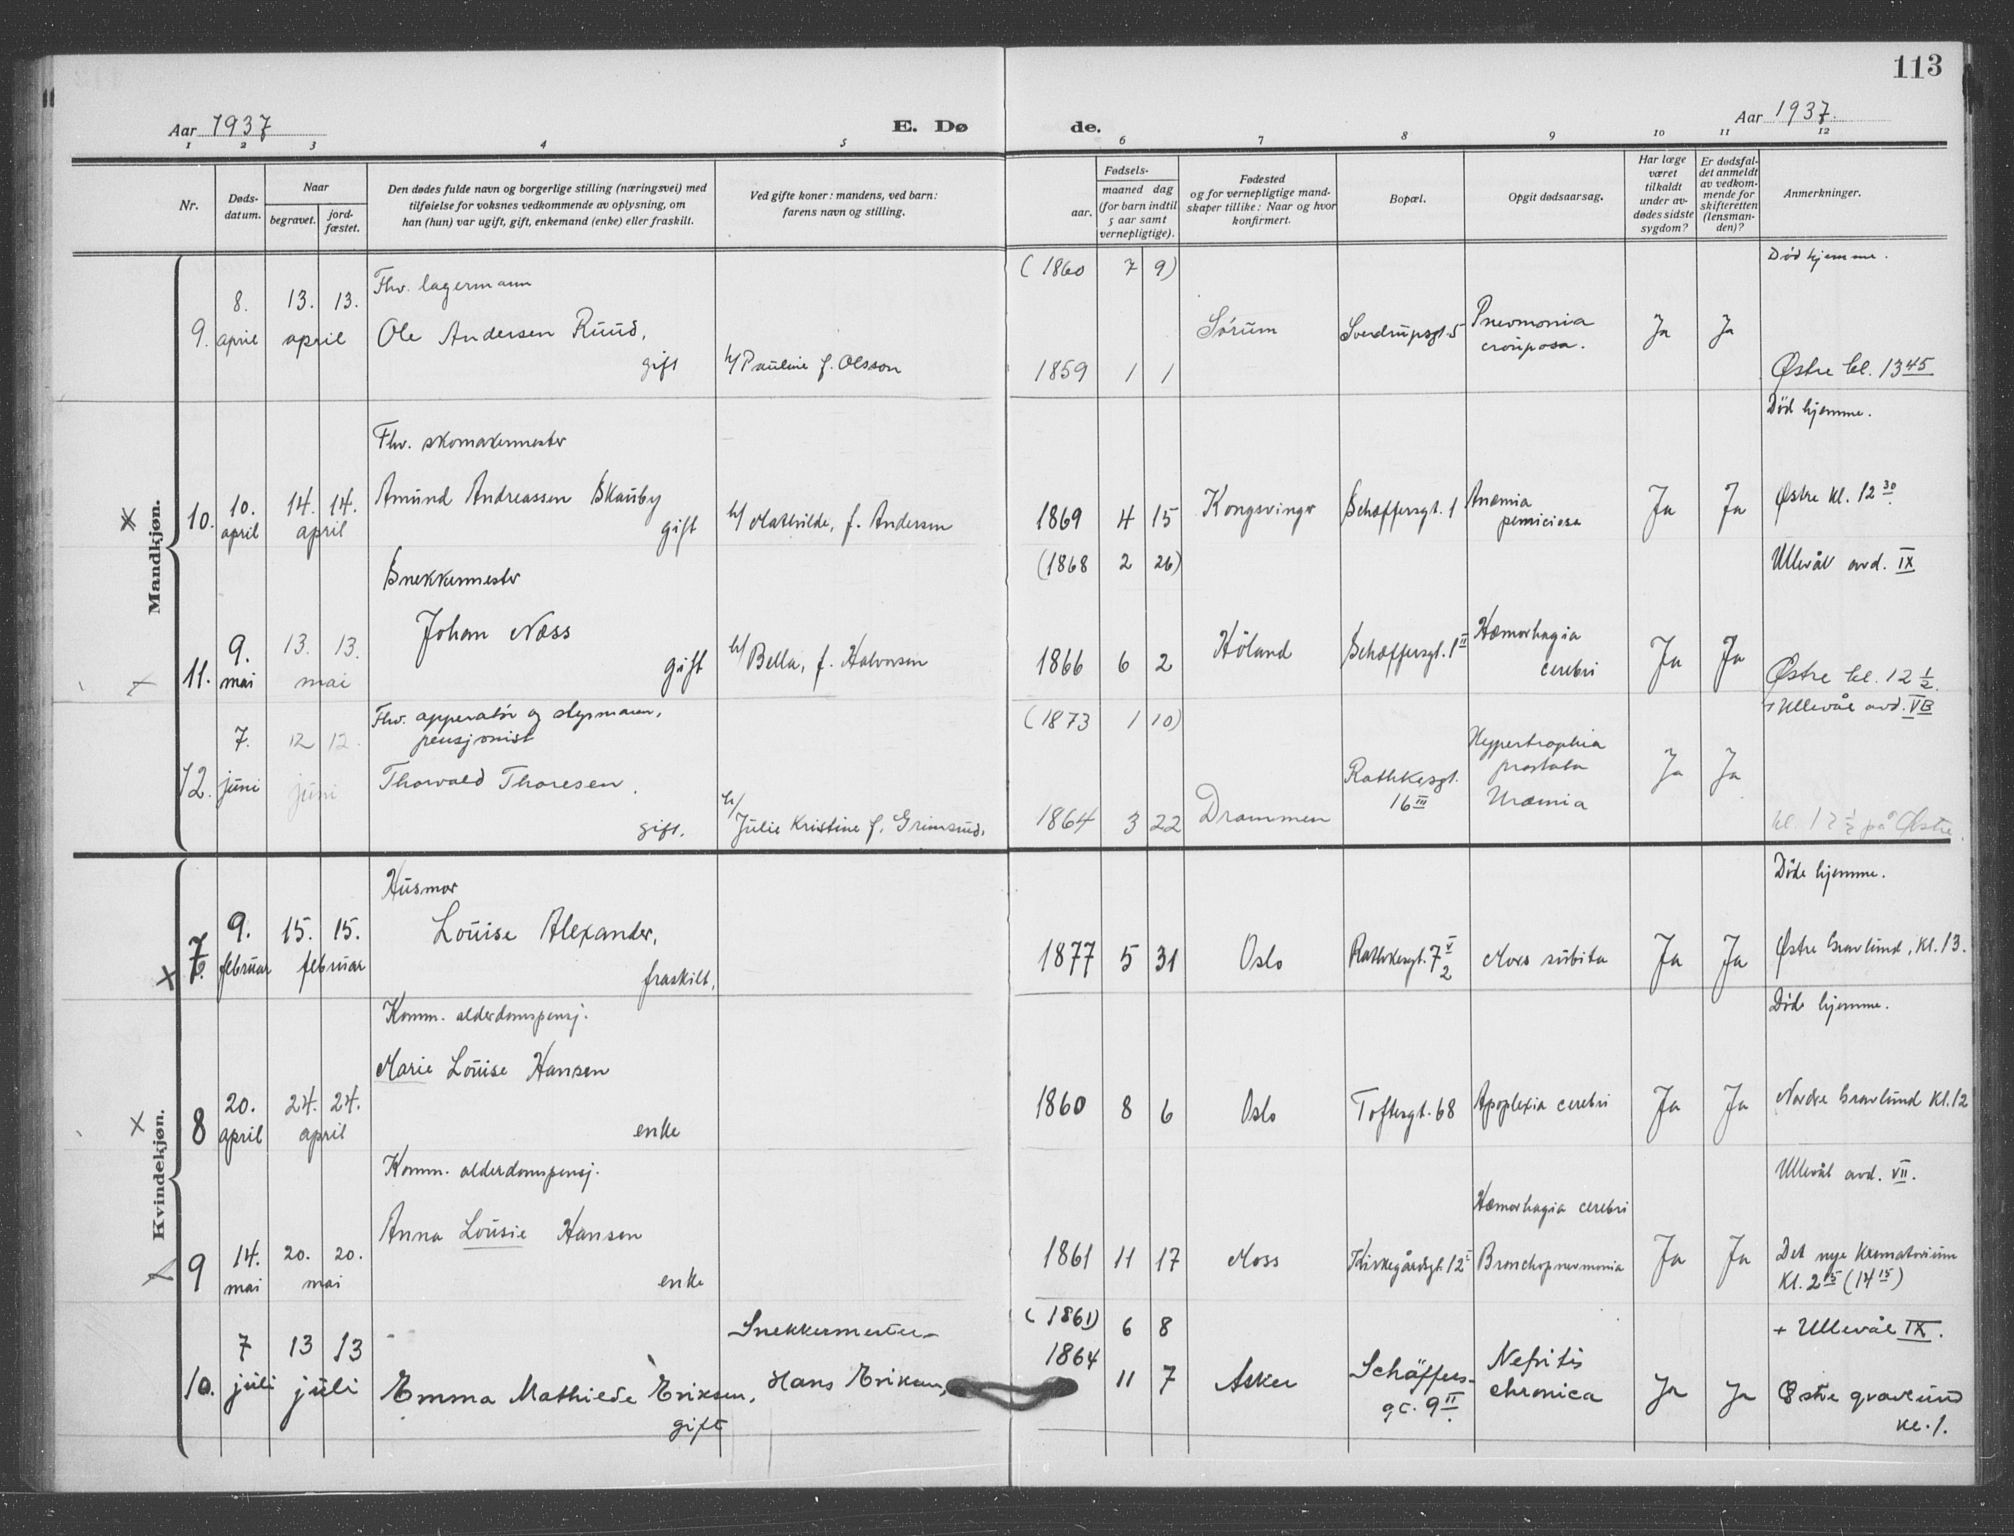 113
Aar 1937
E. Dø
de.
Aar 1937.
1 2 3 4 5 6 7 8 9 10 11 12
Nr.
Døds-
datum.
Naar
begravet.
jord-
fæstet.
Den dødes fulde navn og borgerlige stilling (næringsvei) med
tilføielse for voksnes vedkommende av oplysning, om
han (hun) var ugift, gift, enkemand (enke) eller fraskilt.
Ved gifte koner: mandens, ved barn:
farens navn og stilling.
Fødsels-
aar.
maaned dag
(for barn indtil
5 aar samt
vernepligtige).
Fødested
og for vernepligtige mand-
skaper tillike: Naar og hvor
konfirmert.
Bopæl.
Opgit dødsaarsag.
Har læge
været
tilkaldt
under av-
dødes sidste
sygdom?
Er dødsfal-
det anmeldt
av vedkom-
mende for
skifteretten
(lensman-
den)?
Anmerkninger.
Mandkjøn.
Fhv. lagermann
(1860 7 9)
Død hjemme.
8. 13. 13.
9. april april Ole Andersen Ruud,
Sørum Sverdrupsgt. 5 Pnevmonia
crouposa.
Ja Ja
gift h/ Pauline f. Olsson
1859 1 1
Østre kl. 13 45
Død hjemme.
Fhv. skomakermester
10. 10. 14. 14. Amund Andreassen Skauby
april april gift h/ Mathilde, f. Andersen
1869 4 15 Kongsvinger Schæffersgt. 1 Anæmia
perniciosa
Ja Ja Østre kl. 12 30
Snekkermester
(1868 2 26)
Ullevål avd. IX
Johan Næss
11. 9. 13. 13.
mai mai gift h/ Bella, f. Halvorsen
1866 6 2 Høland Schæffersgt. 1 II Hæmorhagia
cerebri
Ja Ja Østre kl. 12 1/2.
Fhv. apperatør og
pensjonist
(1873 1 10)
+ Ullevål avd. VB
7. 12 12.
12. juni juni Thorvald Thoresen.
gift. h/ Julie Kristine f. Grimsrud.
1864 3 22 Drammen Rathkesgt.
16 III
Hypertrophia
prostata
Uræmia
Ja Ja
kl. 12 1/2 på Østre.
Kvindekjøn.
Husmor
Døde hjemme.
9. 15. 15. Louise Alexander,
7 februar februar fraskilt,
1877 5 31 Oslo Rathkesgt. 7 V
2
Mors subita Ja Ja Østre Gravlund, kl. 13.
Komm. alderdomspensj.
Døde hjemme.
Marie Louise Hansen
8 20. 24. 24.
april april enke
1860 8 6 Oslo Toftesgt. 68 Apoplexia cerebri Ja Ja Nordre Gravlund kl. 12
Komm. alderdomspensj.
Ullevål avd. VII.
Anna Lousie Hansen
9 14. 20. 20.
mai mai enke
1861 11 17 Moss Kirkegårdsgt. 12 I Hæmorhagia cerebri
Bronchopnevmonia
Ja Ja Det nye Krematorium
Kl. 2 15 (14 15)
Snekkermester
(1861) 6 8
+ Ullevål IX.
10. 7 13 13
juli juli Emma Mathilde Eriksen,
gift
Hans Eriksen,
1864 11 7 Asker Schäffers-
gt. 9 II.
Nefritis
chronica
Ja Ja Østre gravlund
kl. 1.